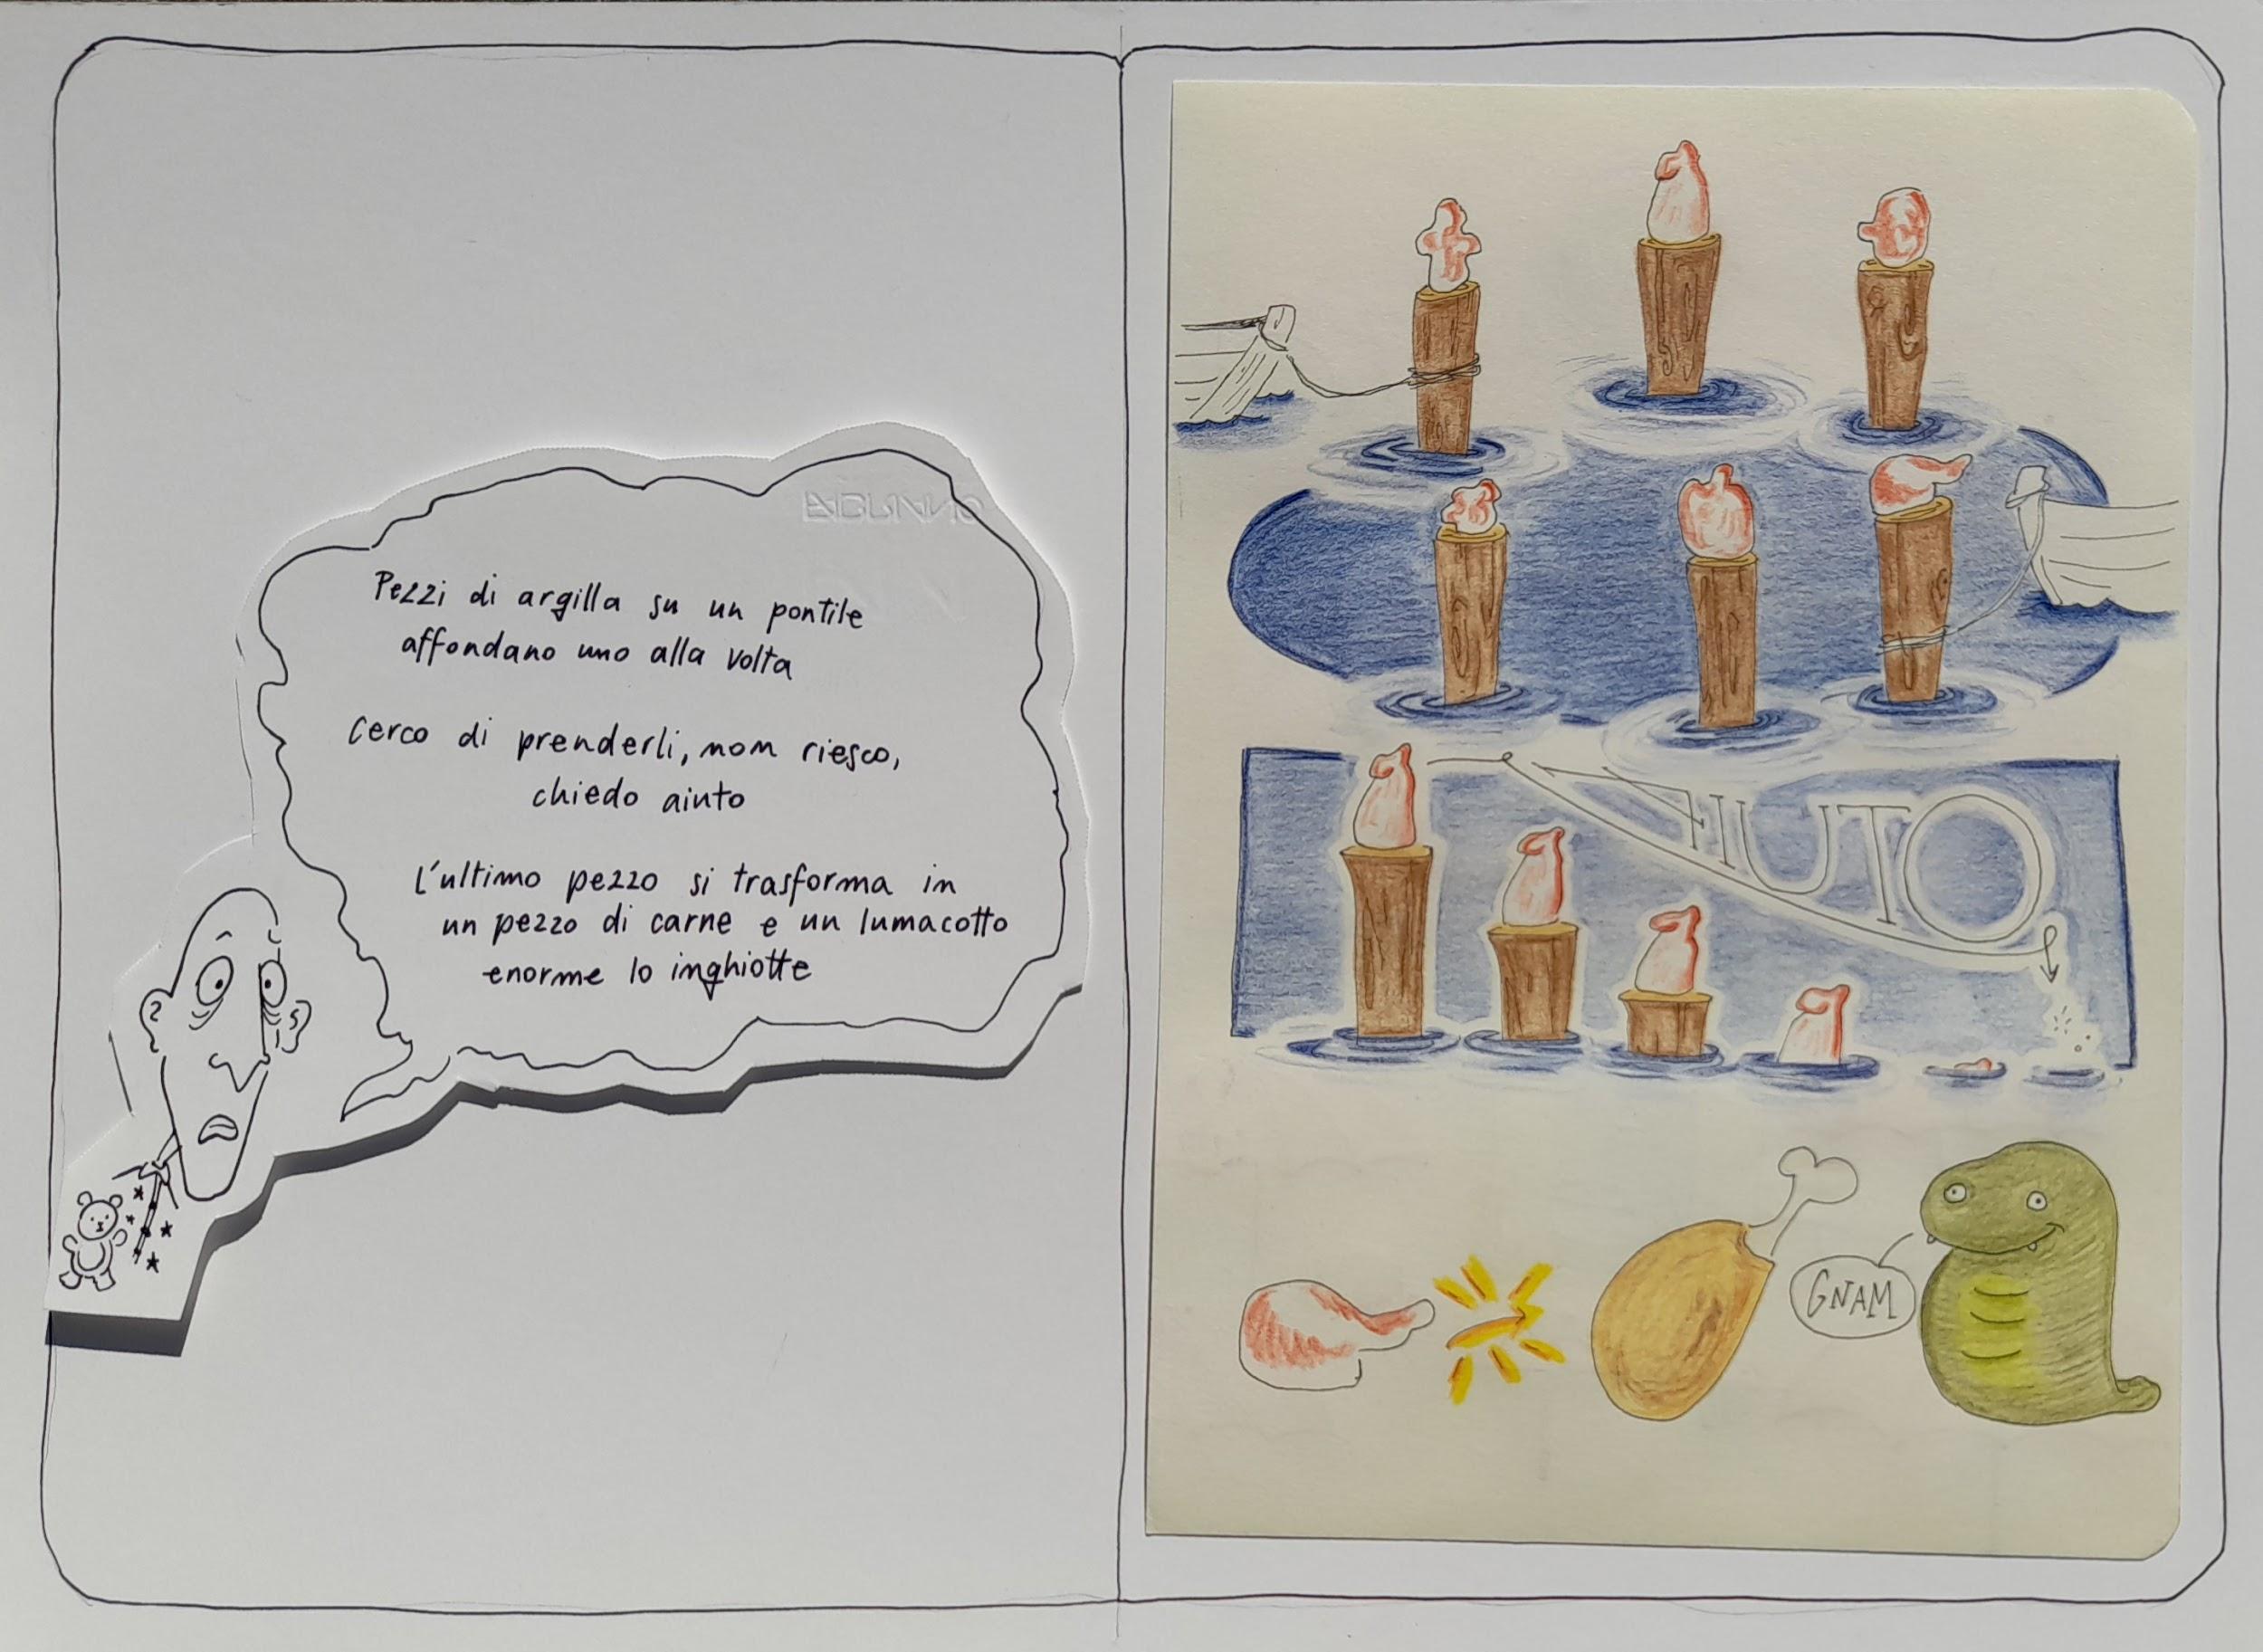 FABRIANO
Pezzi di argilla su un pontile
affondano uno alla volta
Cerco di prenderli, non riesco,
chiedo aiuto
L'ultimo pezzo si trasforma in
un pezzo di carne e un lumacotto
enorme lo inghiotte
AIUTO
GNAM